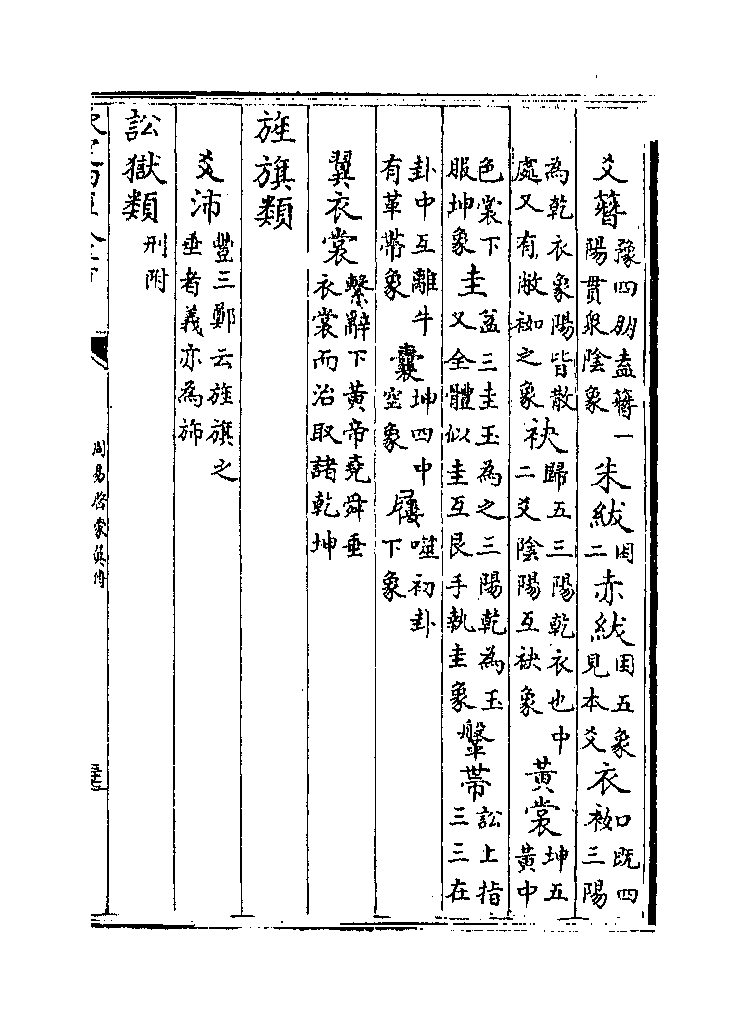 爻簪豫四朋盍簪一陽貫衆陰象朱紱困二赤紱困五象見本爻衣袽既四三陽
為乾衣象陽皆散處又有敝袽之象袂歸五三陽乾衣也中二爻陰陽互袂象黃裳坤五黃中
色裳下服坤象圭益三圭玉為之三陽乾為玉又全體似圭互艮手執圭象鞶帶訟上指三三在
卦中互離牛有革帶象囊坤四中空象屨噬初卦下象
翼衣裳繫辭下黃帝堯舜垂衣裳而治取諸乾坤
旌旗類
爻沛豐三鄭云旌旗之垂者義亦為斾
訟獄類刑附
周易啓蒙翼傳